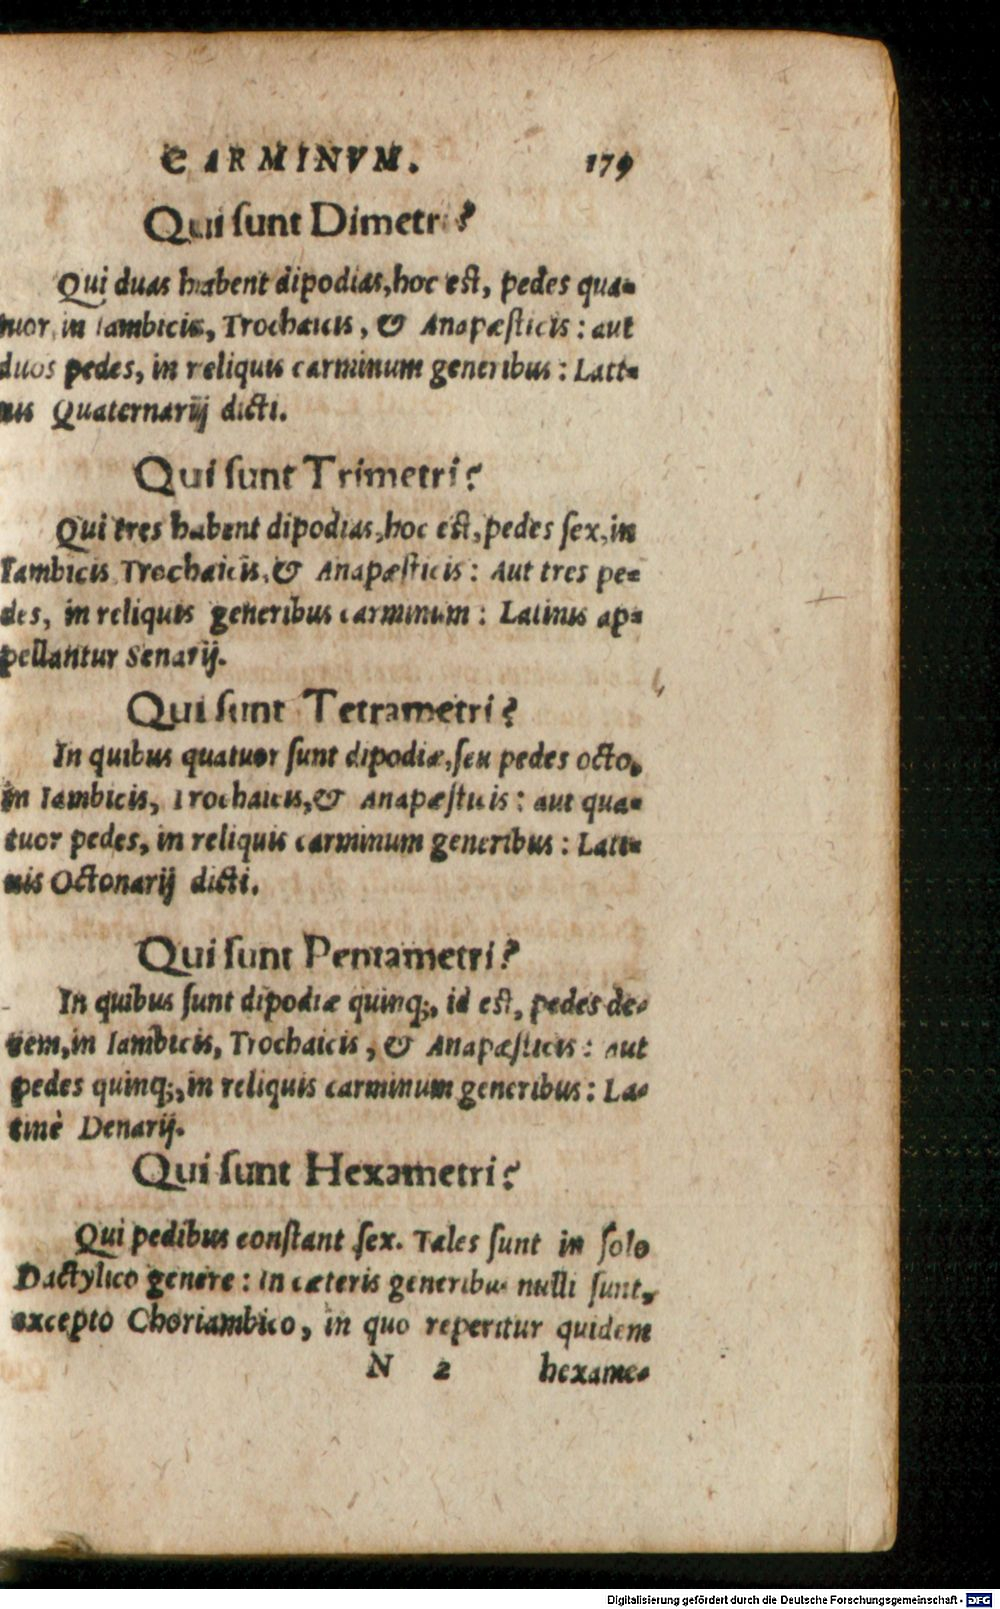 CARMINVM. 179
Qui ſunt Dimetri?
Qui duas habent dipodias, hoc eſt, pedes qua-
tuor, in Iambicis, Trochaicis, & Anapæſticis: aut
duos pedes, in reliquis carminum generibus: Lati-
nis Quaternarij dicti.
Qui ſunt Trimetri?
Qui tres habent dipodias, hoc eſt, pedes ſex, in
Iambicis, Trochaicis, & Anapæſticis: Aut tres pe-
des, in reliquis generibus carminum: Latinis ap-
pellantur Senarij.
Qui ſunt Tetrametri?
In quibus quatuor ſunt dipodiæ, ſeu pedes octo,
in Iambicis, Trochaicis, & Anapæſticis: aut qua-
tuor pedes, in reliquis carminum generibus: Lati-
nis Octonarij dicti.
Qui ſunt Pentametri?
In quibus ſunt dipodiæ quinq;, id eſt, pedes de-
cem, in Iambicis, Trochaicis, & Anapæſticis: aut
pedes quinq;, in reliquis carminum generibus: La-
tinè Denarij.
Qui ſunt Hexametri?
Qui pedibus conſtant ſex. Tales ſunt in ſolo
Dactylico genere: in cæteris generibus nulli ſunt,
excepto Choriambico, in quo reperitur quidem
N 2 hexame-
Digitalisierung gefördert durch die Deutsche Forschungsgemeinschaft - DFG